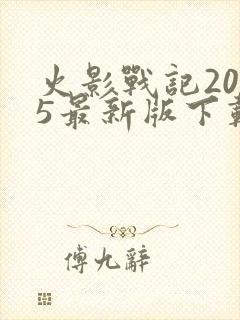 火影戰記20
5最新版下載
傅九辭